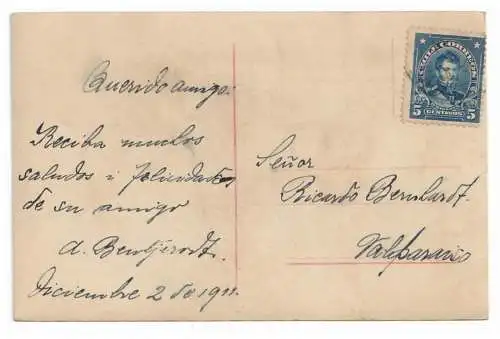 Querido amigo:
Reciba muchos
saludos i felicidades
de su amigo
A. Bentjerodt.
Diciembre 2 de 1911.
CHILE CORREOS
5 CENTAVOS 5
Señor
Ricardo Bernhardt.
Valparaiso